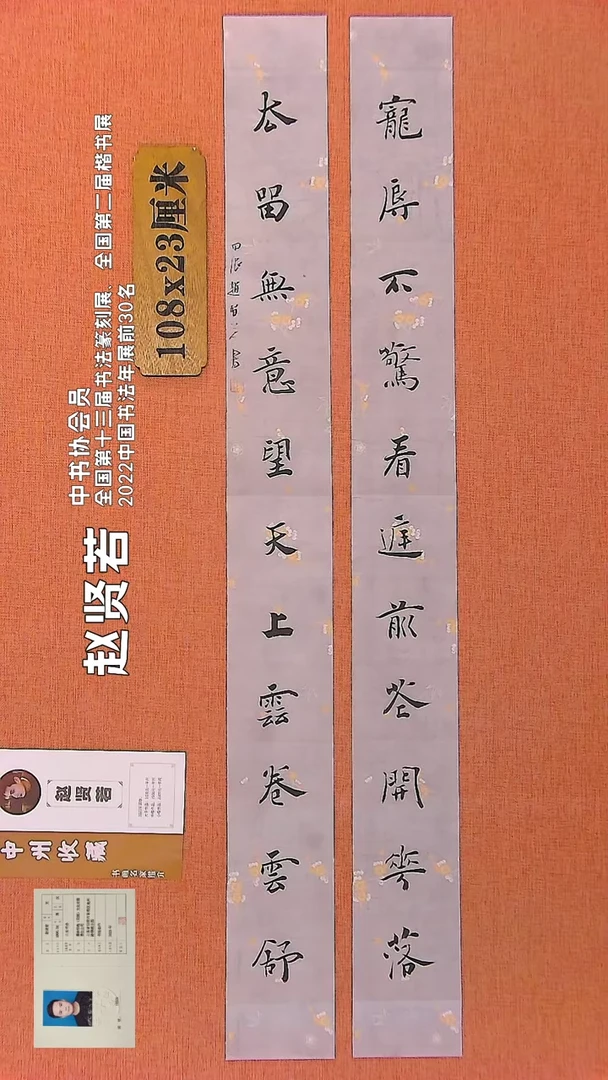 寵辱不驚看庭前花開花落
去留無意望天上雲卷雲舒
108x23厘米
中书协会员
全国第十三届书法篆刻展、全国第二届楷书展
2022中国书法年展前30名
赵贤若
赵贤若
中州收藏
书画名家简介